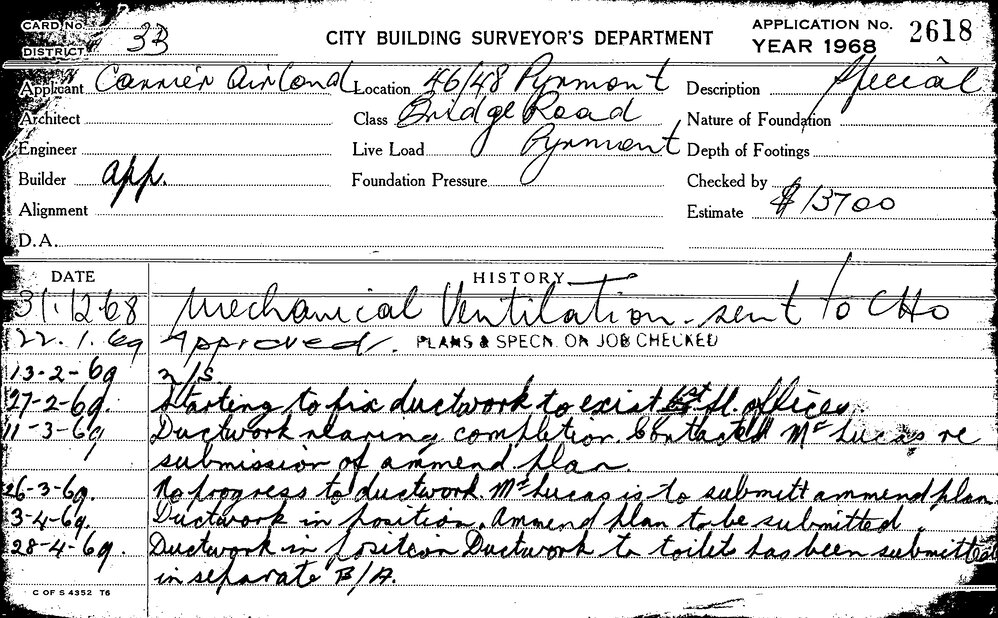 CARD No.
DISTRICT 33
CITY BUILDING SURVEYOR'S DEPARTMENT
APPLICATION No. 2618
YEAR 1968
Applicant Carrier Air Cond Location 46/48 Pyrmont Description Special
Architect Class Bridge Road Nature of Foundation
Engineer Live Load Pyrmont Depth of Footings
Builder App. Foundation Pressure Checked by
Alignment Estimate $13700
D.A.
DATE HISTORY
31.12.68 Mechanical Ventilation - sent to CHO
22.1.69 Approved. PLANS & SPECN. ON JOB CHECKED
13-2-69 N/S.
27-2-69. Starting to fix ductwork to exist 1st fl. offices.
11-3-69 Ductwork nearing completion. Contacted Mr Lucas re
submission of ammend plan.
26-3-69. No progress to ductwork. Mr Lucas is to submitt ammend plan.
3-4-69. Ductwork in position. Ammend plan to be submitted.
28-4-69. Ductwork in position Ductwork to toilets has been submitted
in separate B/A.
C OF S 4352 T6